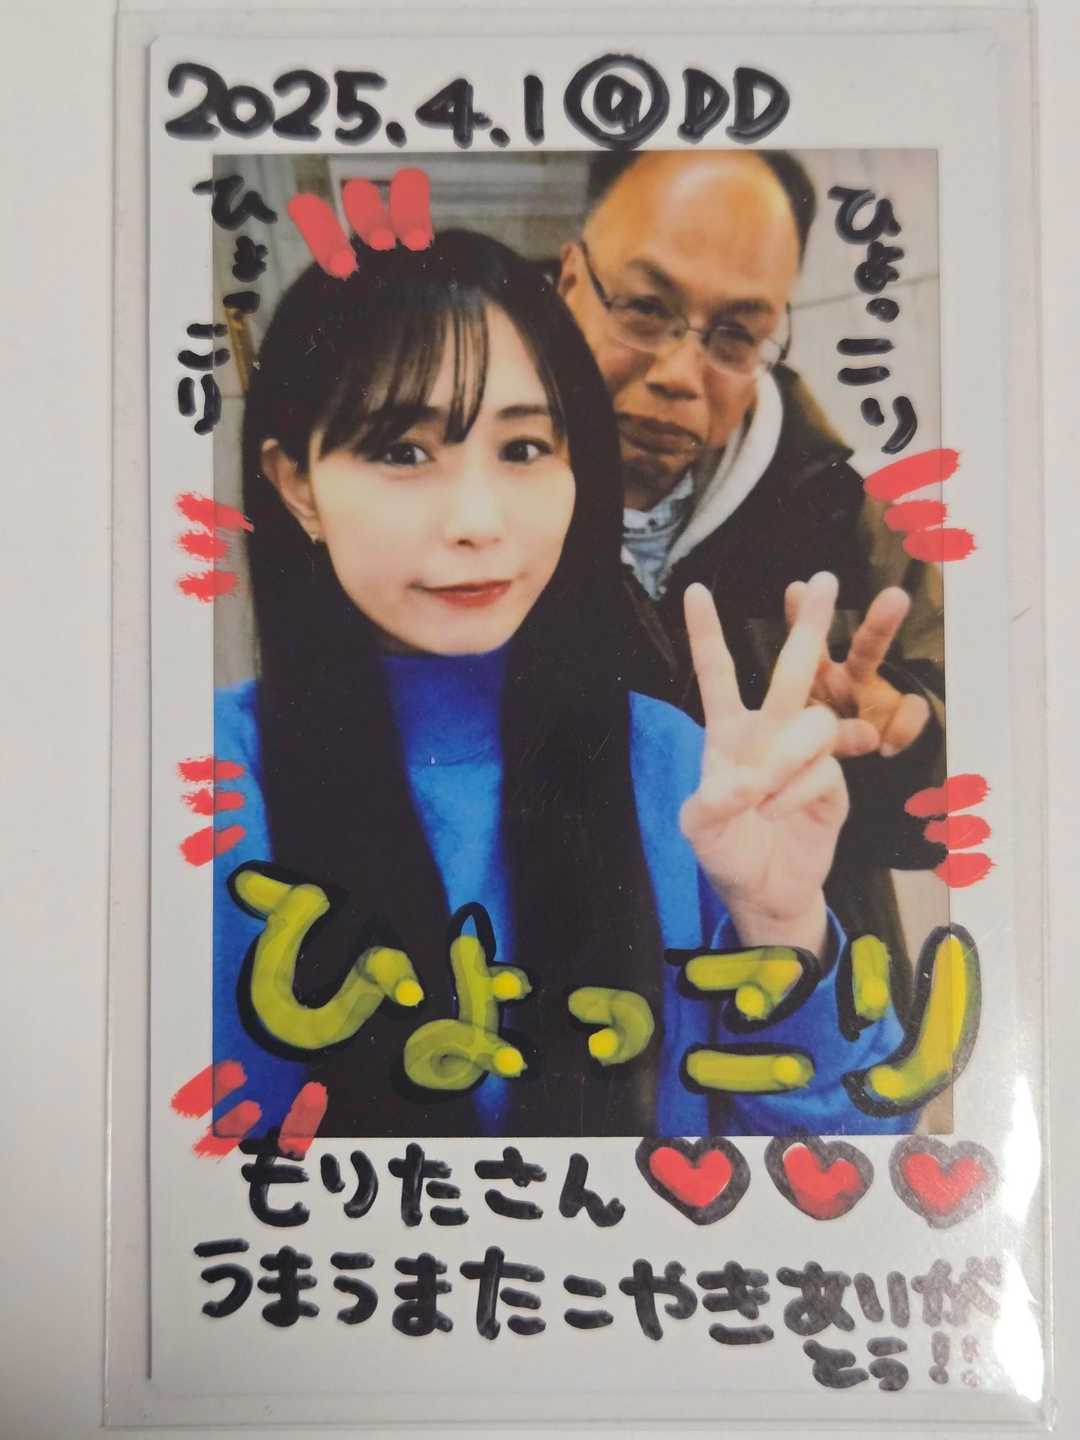 2025.4.1@DD
ひょっこり
ひょっこり
ひょっこり
もりたさん
うまうまたこやきありが
とう!!